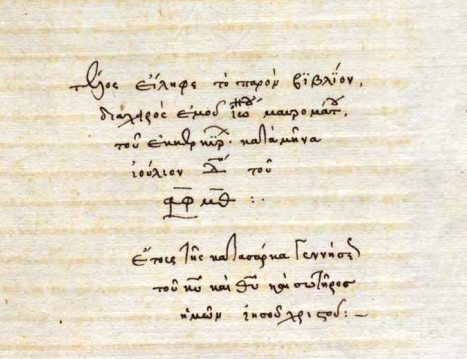 τέλος εἴληφε τὸ παρὸν βϊβλΐον,
διὰ χειρὸς ἐμοῦ ἰω μαυρομάτ,
τοῦ ἐκ κερκύρ. κατὰ μῆνα
ἰούλιον τοῦ
͵αφ μθ :
ἔτους τῆς κατα σάρκα γεννήσε
τοῦ κυ καὶ θυ καὶ σωτῆρος
ἡμῶν ἰησοῦ χριστοῦ :–